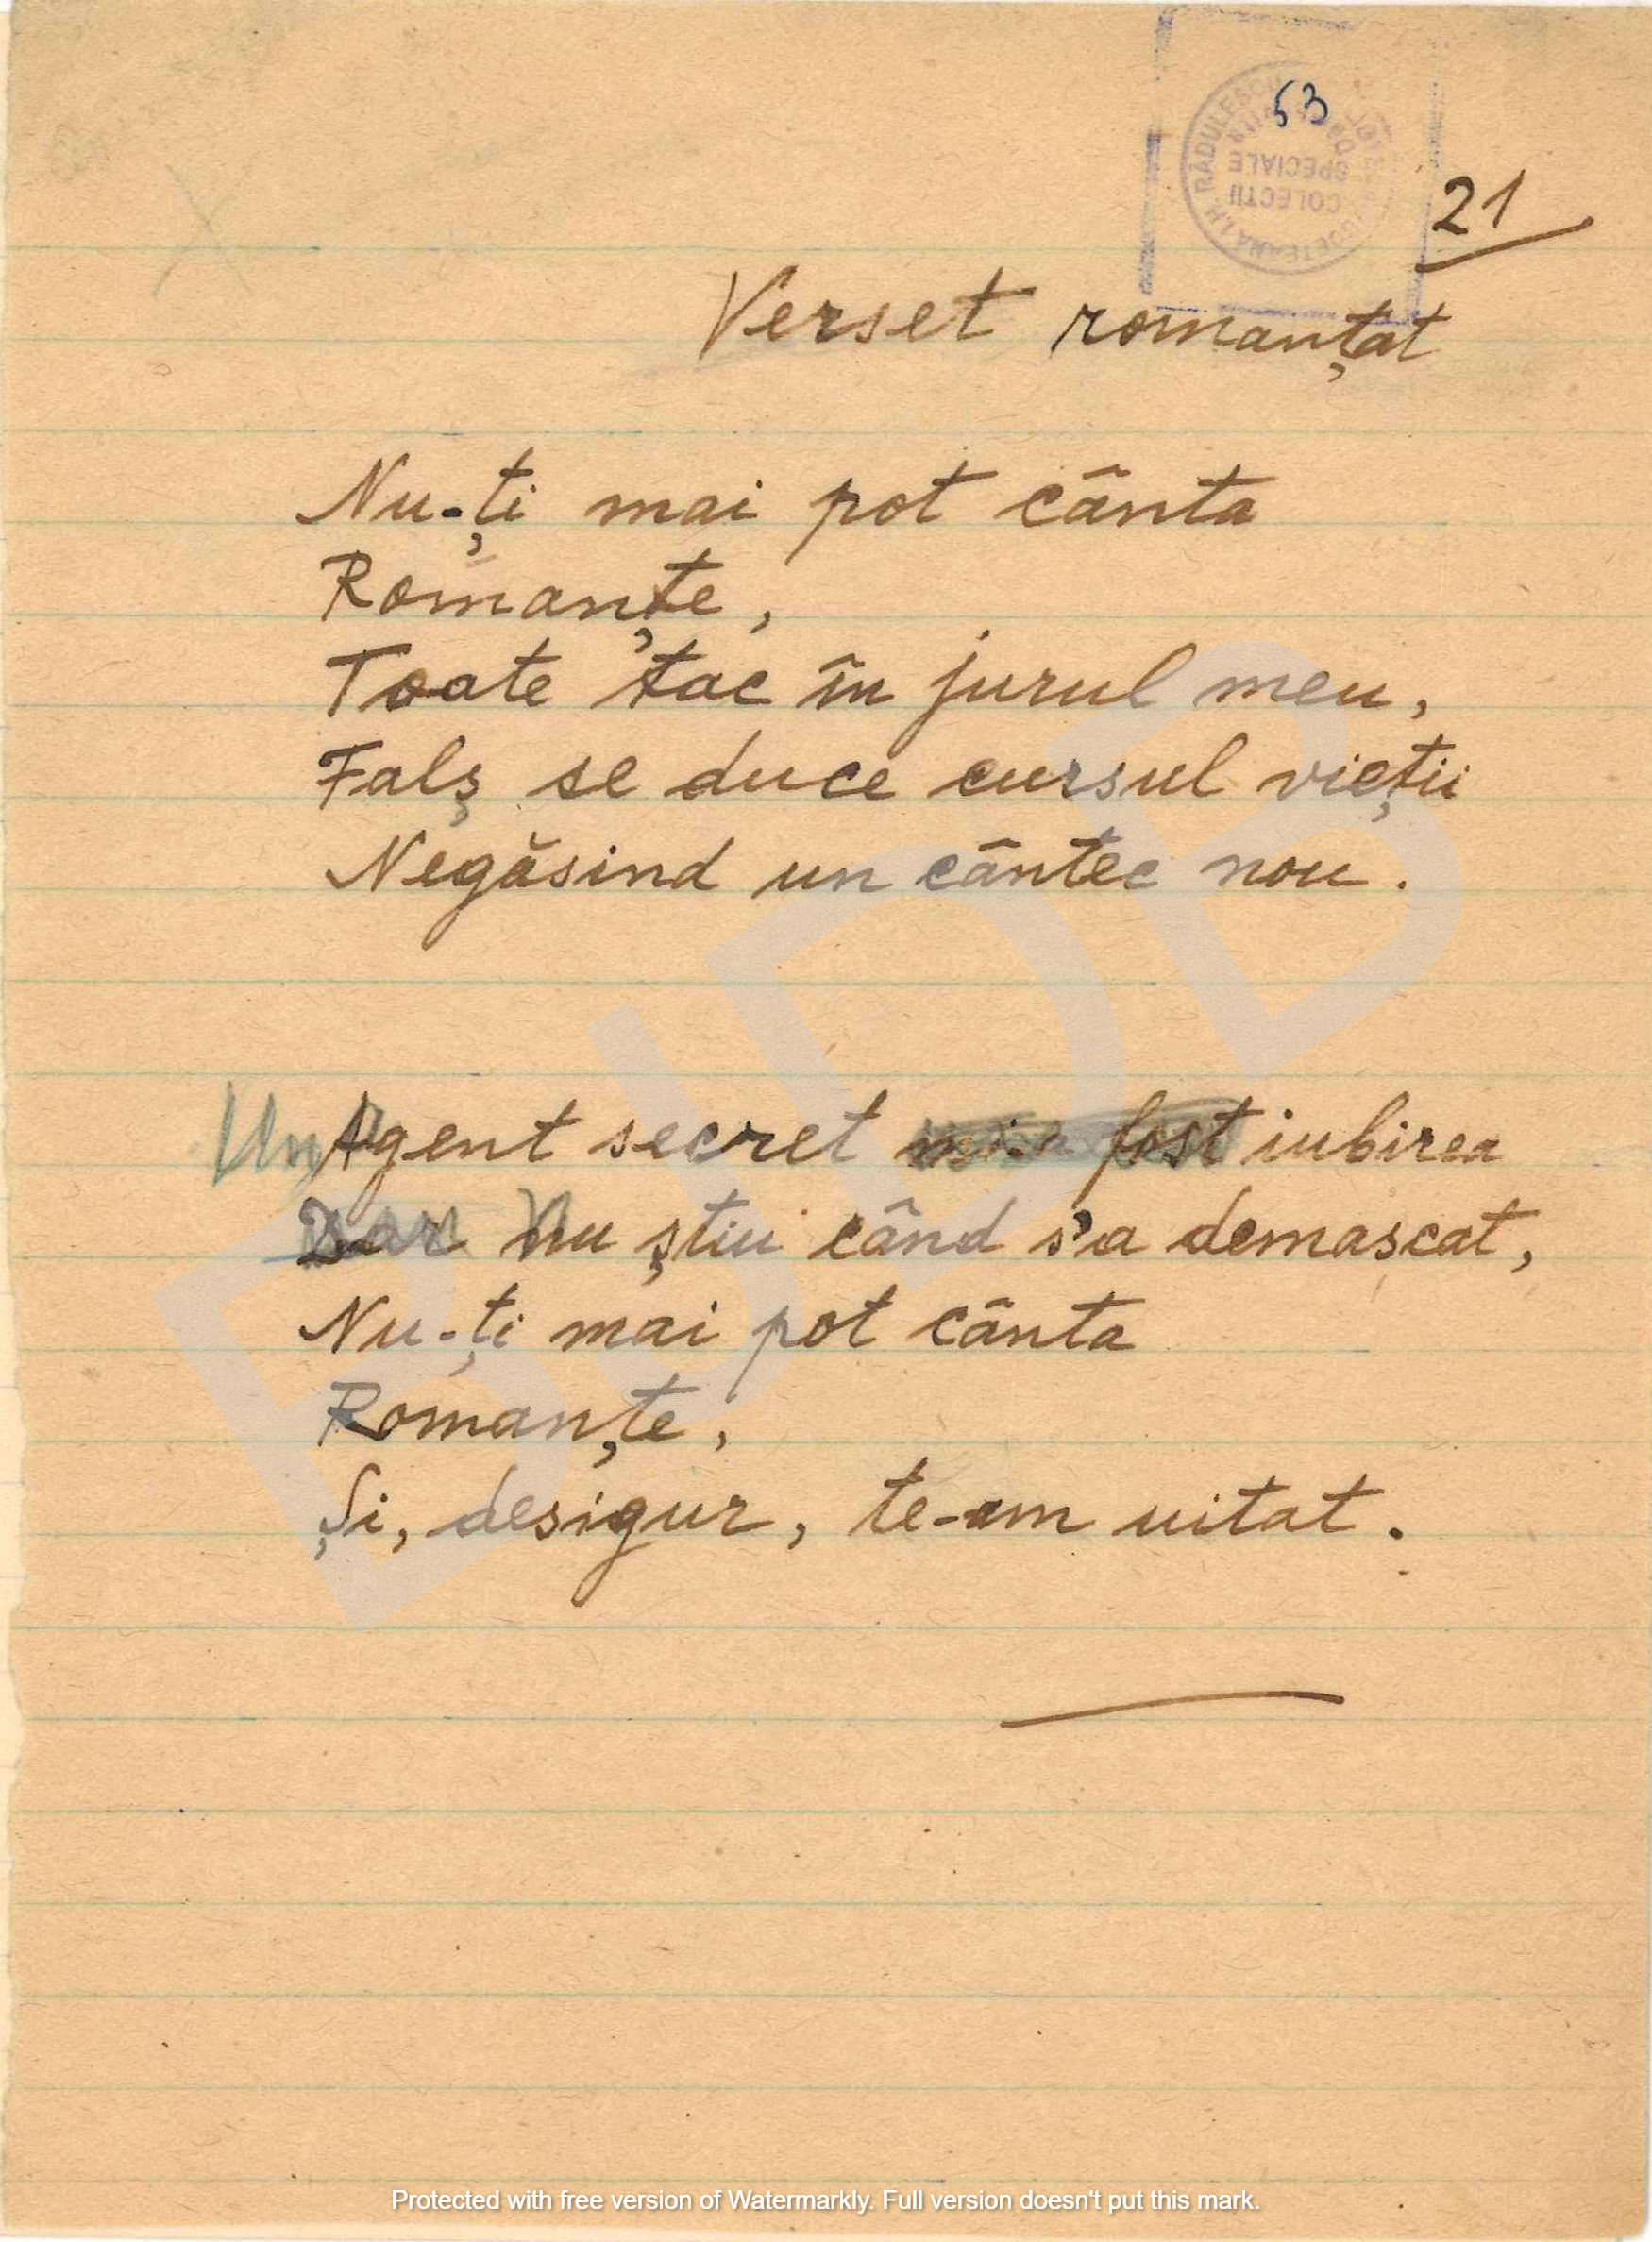 53
COLECTII
SPECIALE
21
Verset romanțat
Nu-ți mai pot cânta
Romanțe,
Toate tac în jurul meu,
Falș se duce cursul vieții
Negăsind un cântec nou.
Un Agent secret mi-a fost iubirea
Dar Nu știu când s'a demascat,
Nu-ți mai pot cânta
Romanțe,
Și, desigur, te-am uitat.
BJDB
Protected with free version of Watermarkly. Full version doesn't put this mark.